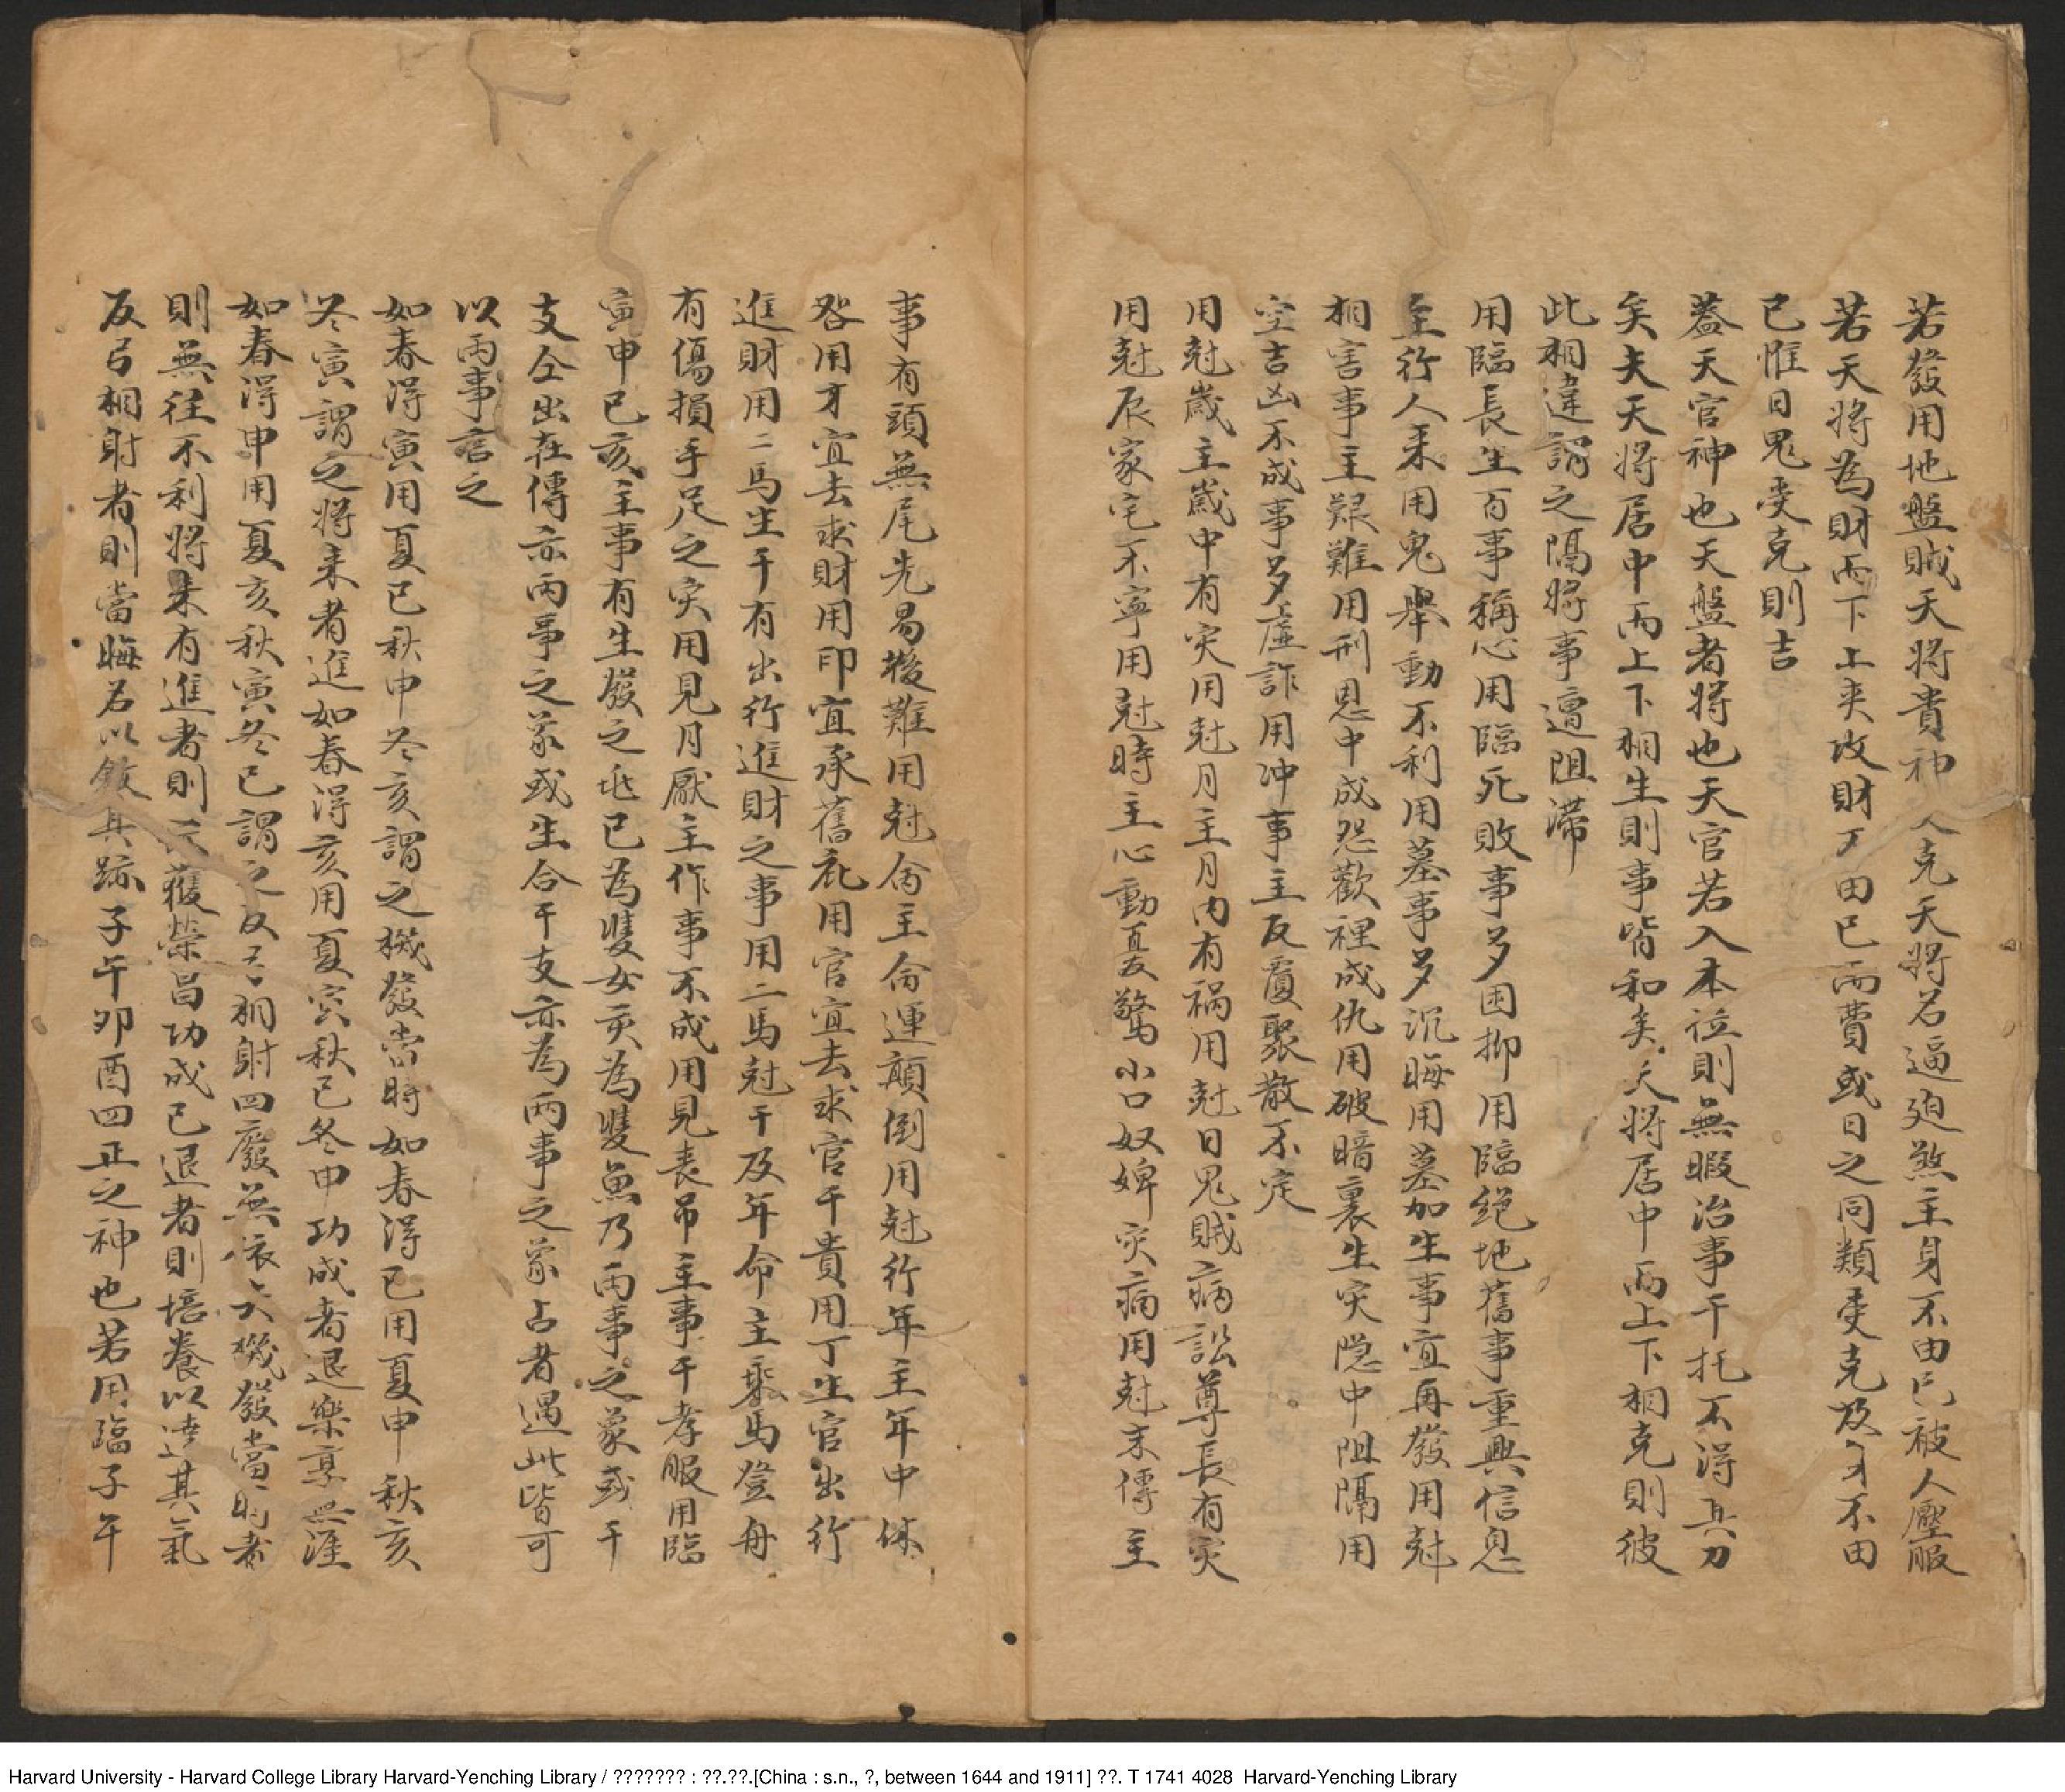 若發用地盤賊天將貴神人克天將名逼廹煞主身不由已被人壓服
若天將為財而下上夾攻財不由已而費或日之同類受克及身不由
已惟日鬼受克則吉
葢天官神也天盤者將也天官若入本位則無暇治事干托不得其力
矣夫天將居中而上下相生則事皆和矣天將居中而上下相克則彼
此相違謂之隔將事遭阻滯
用臨長生百事稱心用臨死敗事多困抑用臨絕地舊事重興信息
至行人来用鬼舉動不利用墓事多沉晦用墓加生事宜再發用尅
相害事主艱難用刑恩中成怨歡裡成仇用破暗裏生灾隐中阻隔用
空吉凶不成事多虛詐用冲事主反覆聚散不定
用尅歲主歲中有灾用尅月主月内有禍用尅日鬼賊病訟尊長有灾
用尅辰家宅不寧用尅時主心動憂驚小口奴婢灾病用尅末傳主
事有頭無尾先易後難用尅命主命運顛倒用尅行年主年中休
咎用才宜去求財用印宜承舊庇用官宜去求官干貴用丁生官出行
進財用二馬生干有出行進財之事用二馬尅干及年命主乘馬登舟
有傷損手足之灾用見月厭主作事不成用見丧吊主事干孝服用臨
寅申巳亥主事有生發之兆巳為雙女亥為雙魚乃两事之象或干
支仝出在傳亦两事之象或生合干支亦為两事之象占者遇此皆可
以两事言之
如春得寅用夏巳秋申冬亥謂之機發當時如春得巳用夏申秋亥
冬寅謂之將来者進如春得亥用夏寅秋巳冬申功成者退樂享無涯
如春得申用夏亥秋寅冬巳謂之反弓相射四廢無依夫機發當時者
則無往不利將来有進者則 獲榮昌功成已退者則培養以達其氣
反弓相射者則當晦名以斂其跡子午卯酉四正之神也若用臨子午
Harvard University - Harvard College Library Harvard-Yenching Library / ??????? : ??.??.[China : s.n., ?, between 1644 and 1911] ??. T 1741 4028 Harvard-Yenching Library